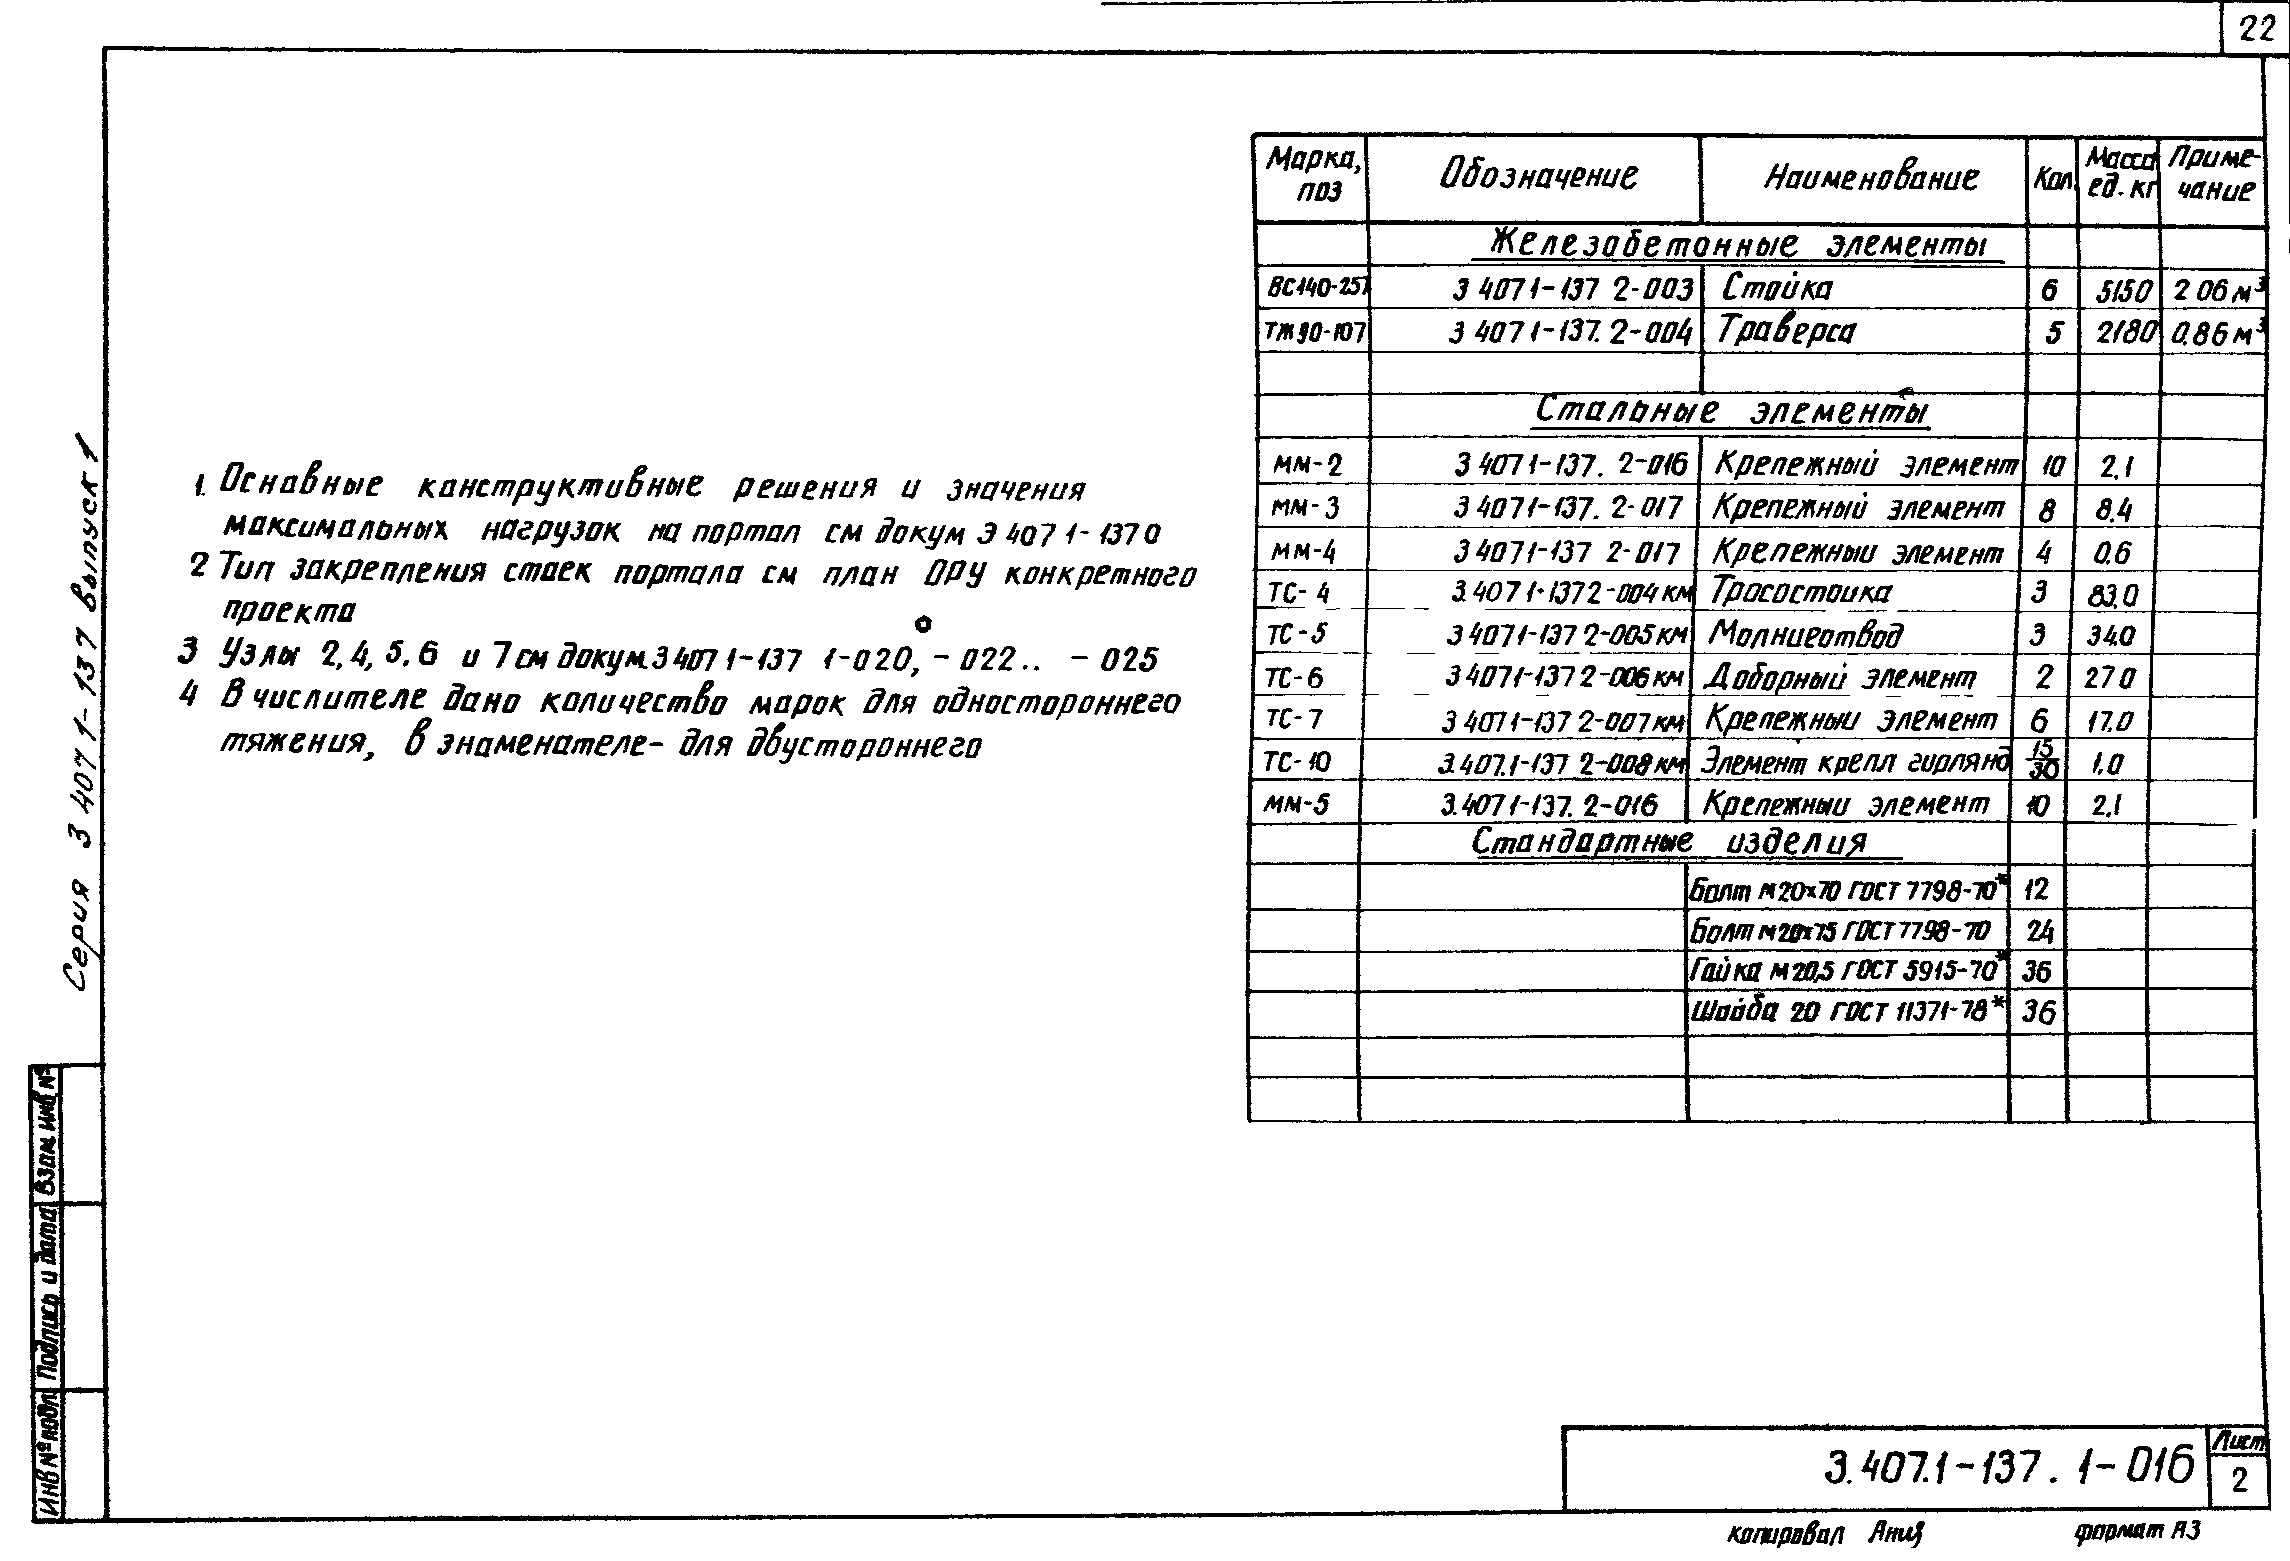 22
Серия 3 407 1-137 выпуск 1
1. Основные конструктивные решения и значения
максимальных нагрузок на портал см докум 3 407 1-137 0
2 Тип закрепления стоек портала см план ОРУ конкретного
проекта
3 Узлы 2, 4, 5, 6 и 7 см докум. 3 407 1-137 1-020, -022.. -025
4 В числителе дано количество марок для одностороннего
тяжения, в знаменателе- для двустороннего
Марка, поз Обозначение Наименование Кол. Масса ед. кг Приме-чание
Железобетонные элементы
ВС140-257 3 407 1-137 2-003 Стойка 6 5150 2 06 м³
ТЖ90-107 3 407 1-137. 2-004 Траверса 5 2180 0.86 м³
Стальные элементы
ММ-2 3 407 1-137. 2-016 Крепежный элемент 10 2,1
ММ-3 3 407 1-137. 2-017 Крепежный элемент 8 8.4
ММ-4 3 407 1-137 2-017 Крепежный элемент 4 0.6
ТС-4 3.407 1-137 2-004 КМ Тросостойка 3 83.0
ТС-5 3 407 1-137 2-005 КМ Молниеотвод 3 34.0
ТС-6 3 407 1-137 2-006 КМ Доборный элемент 2 27 0
ТС-7 3 407 1-137 2-007 КМ Крепежный элемент 6 17.0
ТС-10 3.407.1-137 2-008 КМ Элемент крепл гирлянд 15/30 1.0
ММ-5 3.407 1-137. 2-016 Крепежный элемент 10 2,1
Стандартные изделия
Болт М20×70 ГОСТ 7798-70* 12
Болт М20×75 ГОСТ 7798-70 24
Гайка М20,5 ГОСТ 5915-70* 36
Шайба 20 ГОСТ 11371-78* 36
Взам. инв №
Подпись и дата
Инв № подл.
3.407.1-137. 1-016
Лист
2
копировал
формат А3